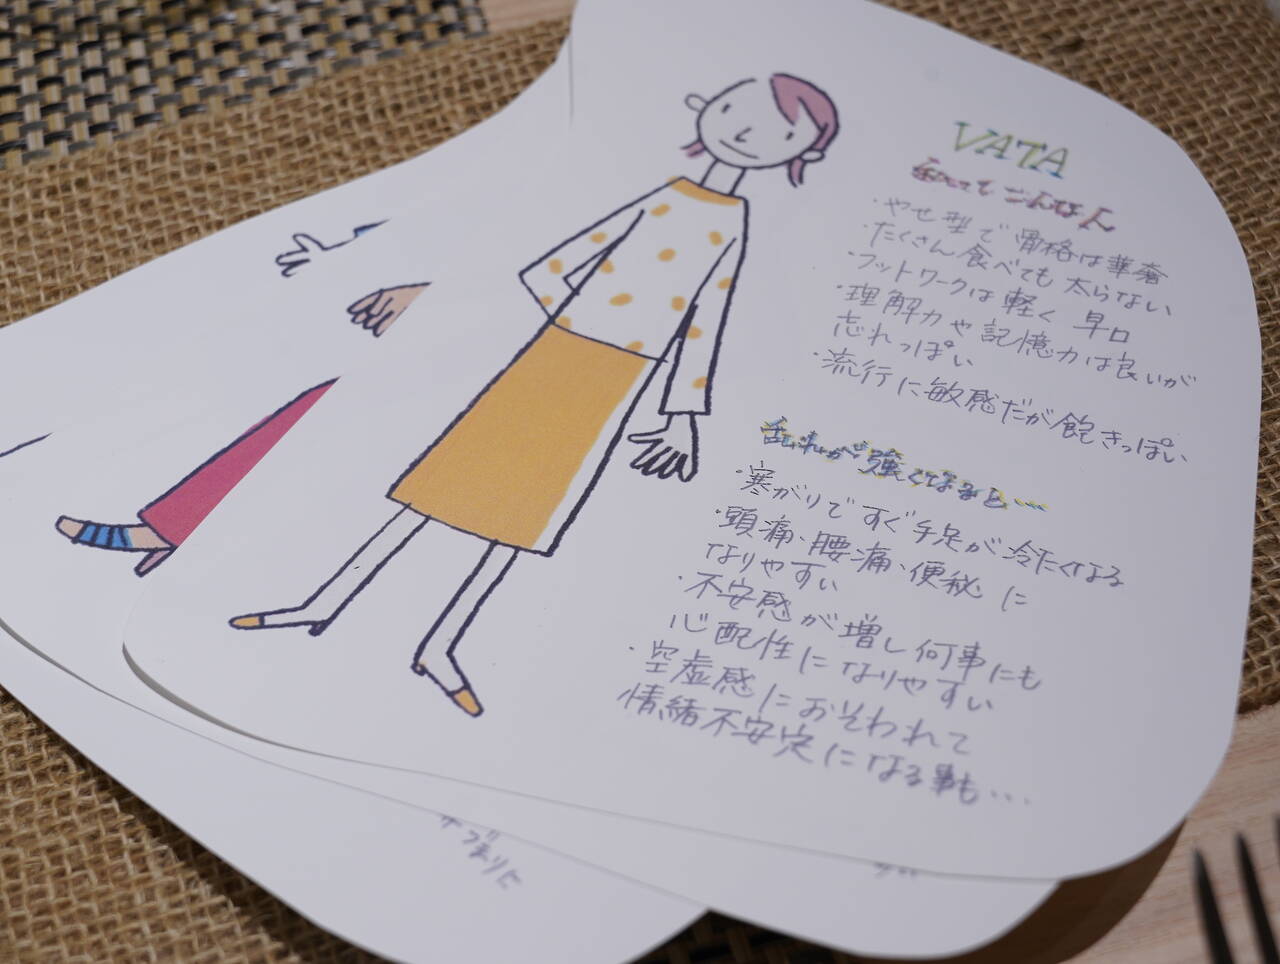 VATA
私ってこんな人
・やせ型で骨格は華奢
たくさん食べても太らない
・フットワークは軽く 早口
・理解力や記憶力は良いが
忘れっぽい
・流行に敏感だが飽きっぽい
乱れが強くなると…
・寒がりですぐ手足が冷たくなる
・頭痛・腰痛・便秘に
なりやすい
・不安感が増し何事にも
心配性になりやすい
・空虚感におそわれて
情緒不安定になる事も…